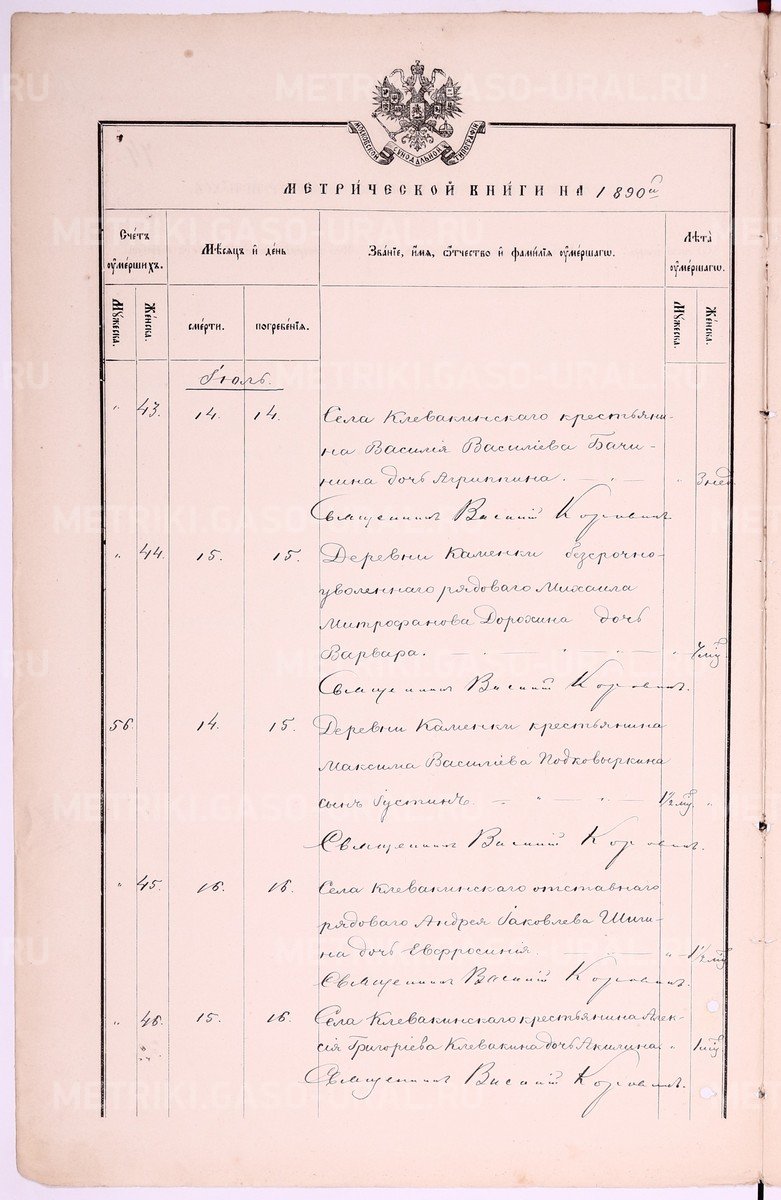 METRIKI.GASO-URAL.RU
МОСКОВСКОЙ СѴНОДАЛЬНОЙ ТИПОГРАФІИ
МЕТРИ́ЧЕСКОЙ КНИ́ГИ НА 1890й
Сче́тъ ᲂу҆ме́ршихъ.
Мѣ́сяцъ и҆ де́нь
Зва́нїе, и҆́мя, ѻ҆́тчество и҆ фами́лїя ᲂу҆ме́ршагѡ.
Лѣ́та ᲂу҆ме́ршагѡ.
Мꙋ́жеска.
Же́нска.
сме́рти.
погребе́нїя.
Мꙋ́жеска.
Же́нска.
Іюль.
" 43. 14. 14. Села Клевакинскаго крестьяни-
на Василія Василіева Бачи-
нина дочь Агриппина. — " — " 3 нед.
Священникъ Василій Коровинъ.
" 44. 15. 15. Деревни Каменки безсрочно-
уволеннаго рядоваго Михаила
Митрофанова Дорохина дочь
Варвара. — " — " — "
Священникъ Василій Коровинъ.
56. 14. 15. Деревни Каменки крестьянина
Максима Василіева Подковыркина
сынъ Іустинъ. — " — " — 1½ мц. "
Священникъ Василій Коровинъ.
" 45. 16. 16. Села Клевакинскаго отставнаго
рядоваго Андрея Іаковлева Шиги-
на дочь Евфросинія. — " 1½ мц
Священникъ Василій Коровинъ.
" 46. 15. 16. Села Клевакинскаго крестьянина Алек-
сія Григоріева Клевакина дочь Акилина. " 1 мц
Священникъ Василій Коровинъ.